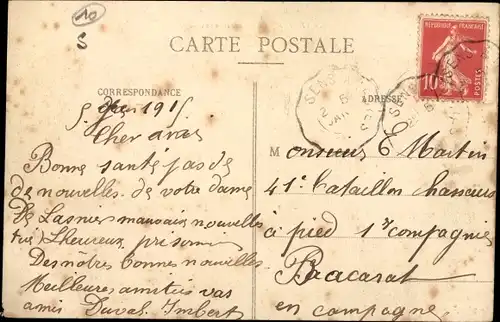 10
CARTE POSTALE
RÉPUBLIQUE FRANÇAISE
10
POSTES
SENS
CORRESPONDANCE
ADRESSE
1915
Cher ami
Bonne santé pas de
de nouvelles de votre dame
De Lasnier mauvais nouvelles
L'heureux prisonn
Des nôtres bonnes nouvelles
Meilleures amitiés vos
amis Duval Imbert
Monsieur E Martin
41e Bataillon chasseurs
à pied 1re compagnie
Bacarat
en campagne